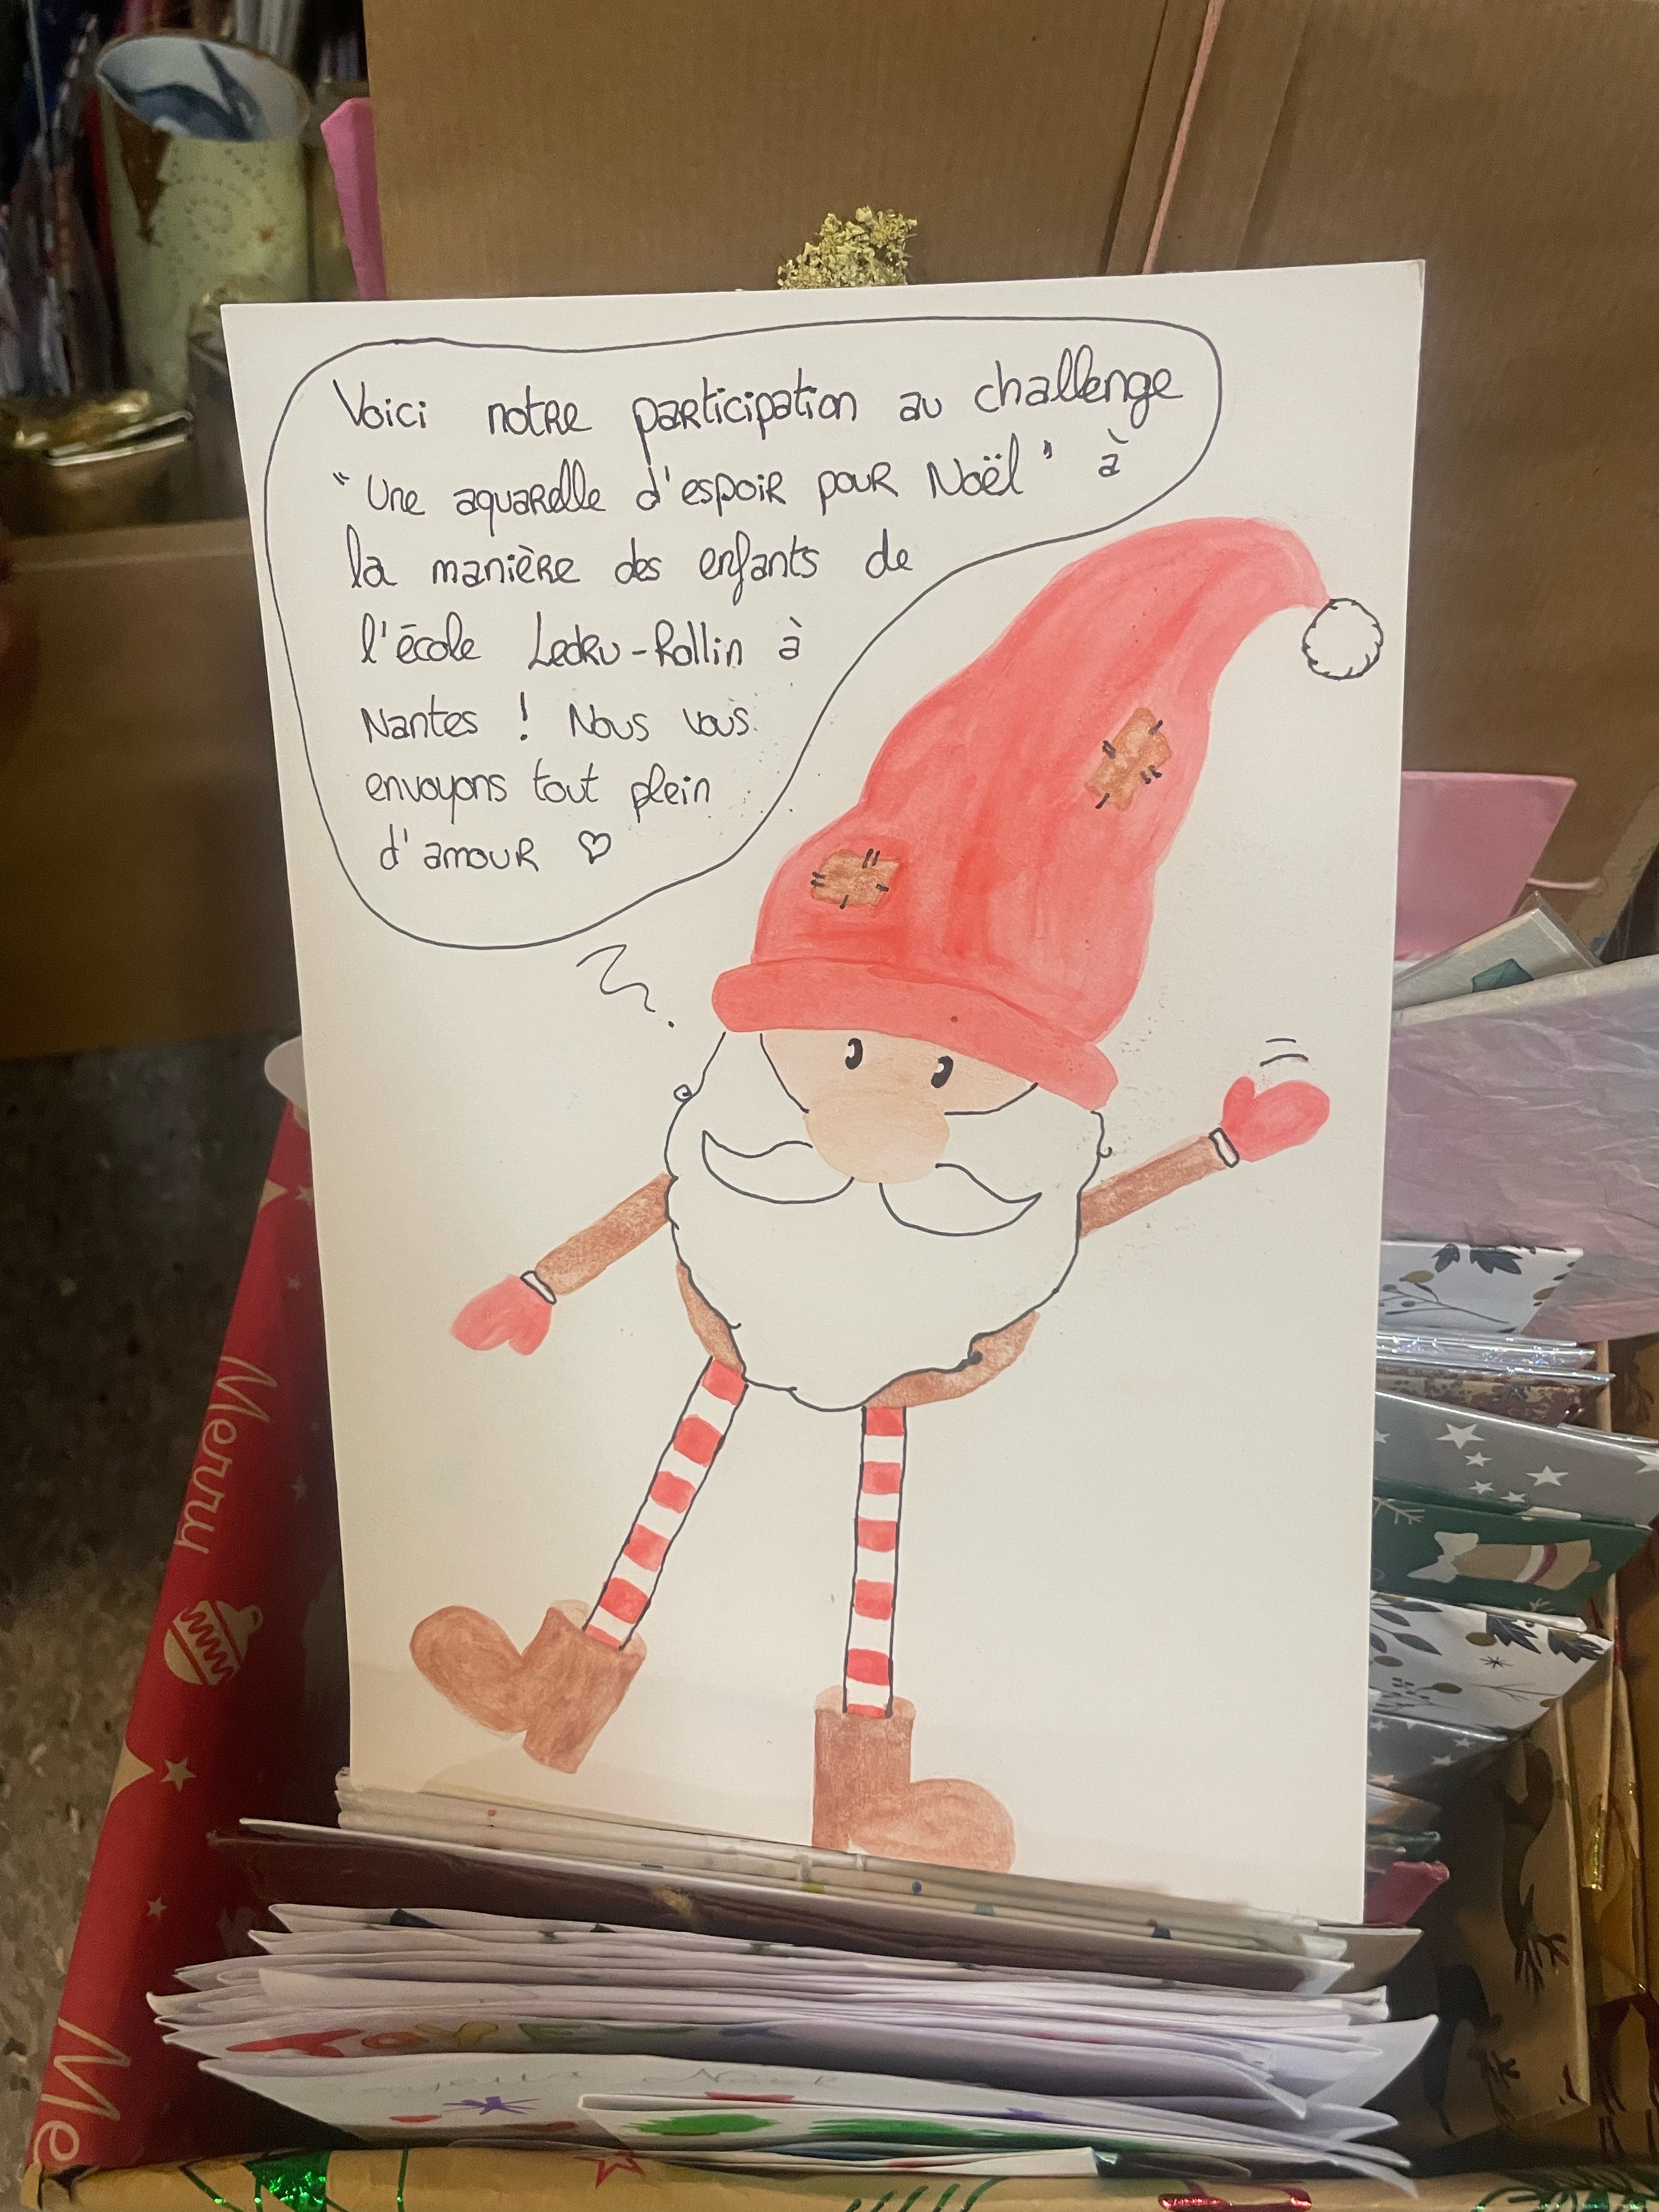 Voici notre participation au challenge
" Une aquarelle d'espoir pour Noël " à
la manière des enfants de
l'école Ledru-Rollin à
Nantes ! Nous vous
envoyons tout plein
d'amour ♡
Merry
Me